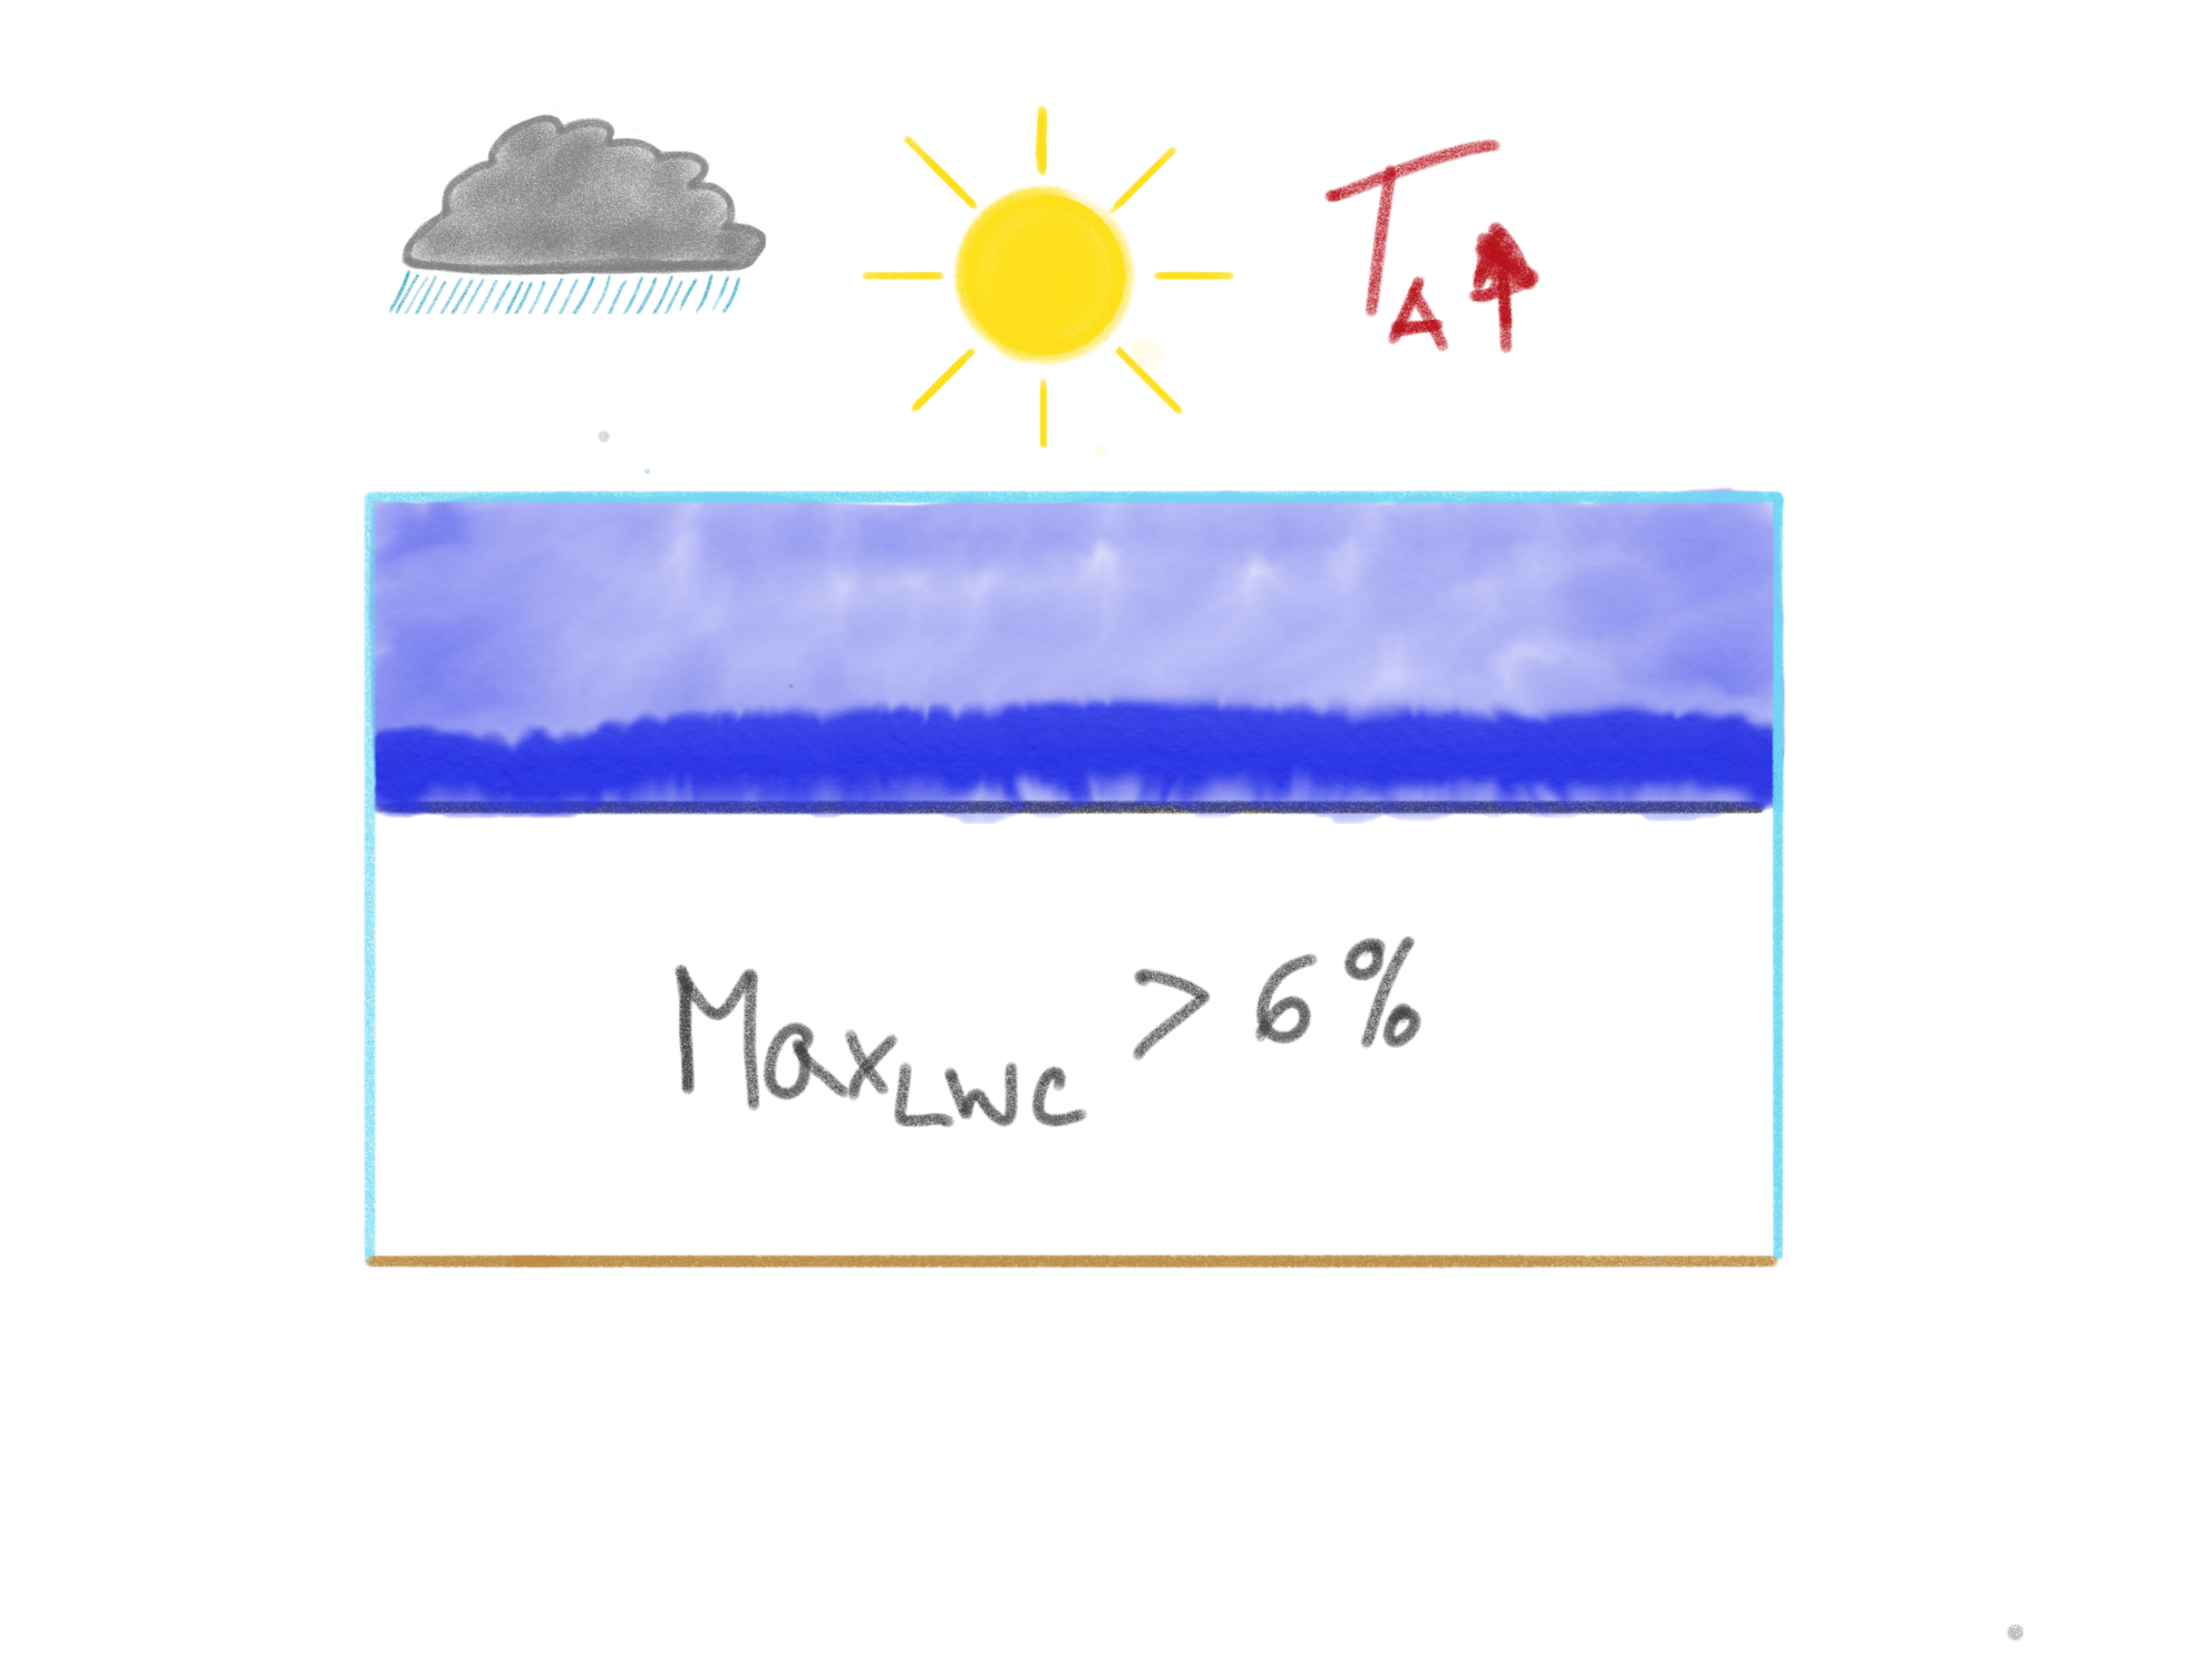 TA↑
MaxLWC > 6%